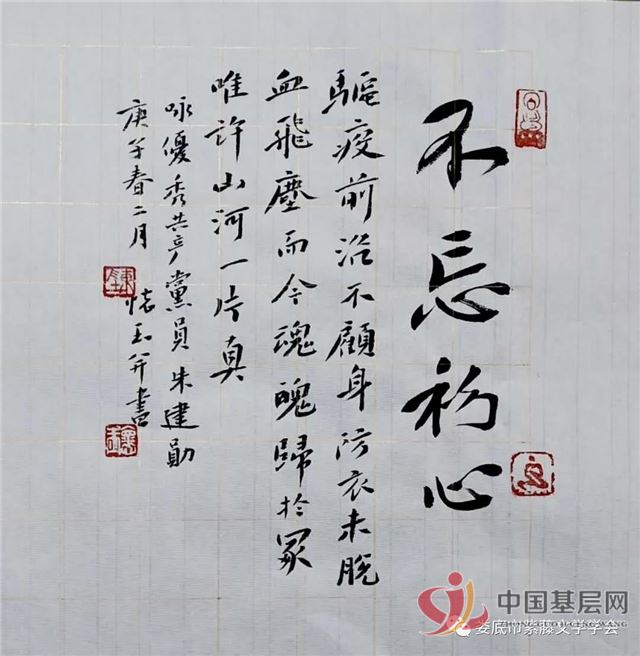 不忘初心
驅疫前沿不顧身防衣未脫
血飛塵而今魂魄歸於冢
唯許山河一片真
咏優秀共产黨員朱建勛
庚子春二月 懷玉并書
中国基层网
ZHONGGUOJICENGWANG
娄底市紫藤文学学会